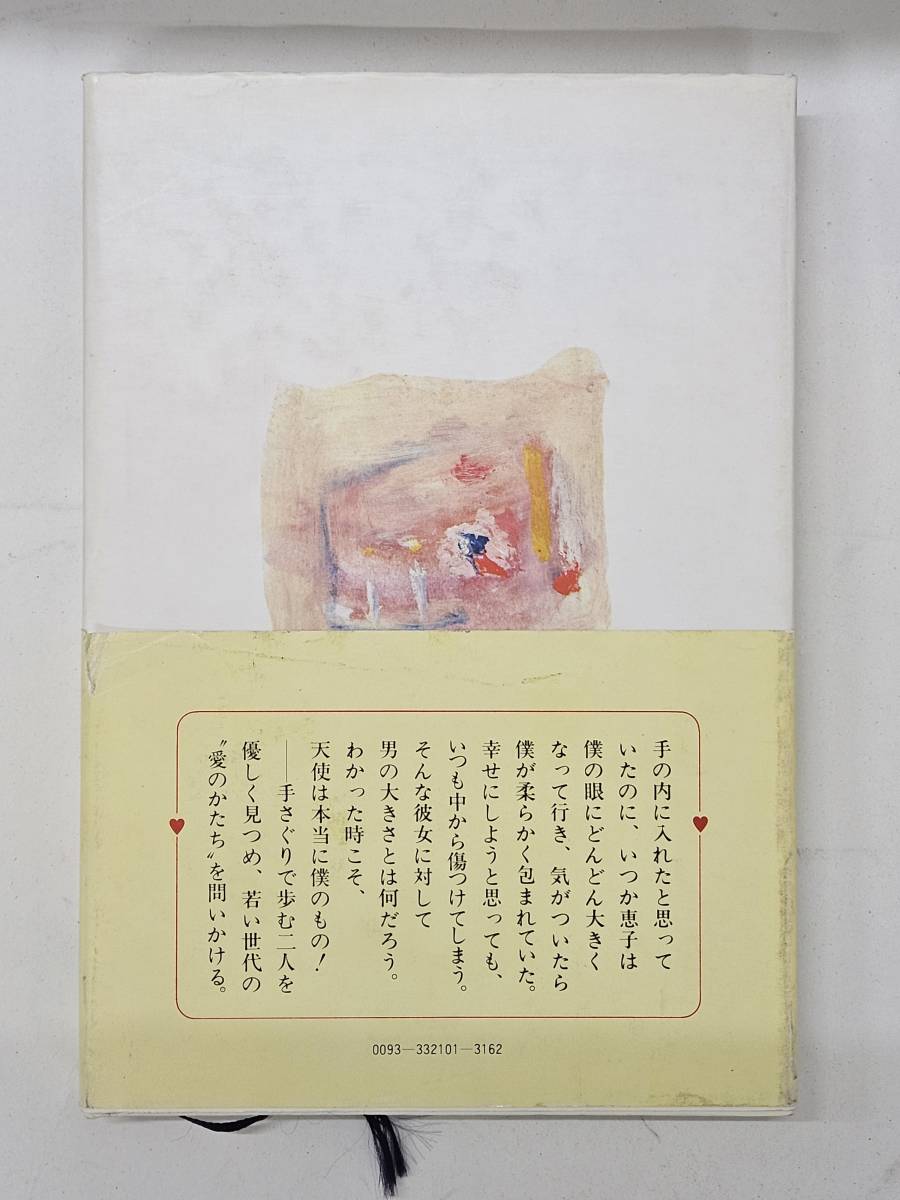 手の内に入れたと思って
いたのに、いつか恵子は
僕の眼にどんどん大きく
なって行き、気がついたら
僕が柔らかく包まれていた。
幸せにしようと思っても、
いつも中から傷つけてしまう。
そんな彼女に対して
男の大きさとは何だろう。
わかった時こそ、
天使は本当に僕のもの！
――手さぐりで歩む二人を
優しく見つめ、若い世代の
〝愛のかたち〟を問いかける。
0093―332101―3162